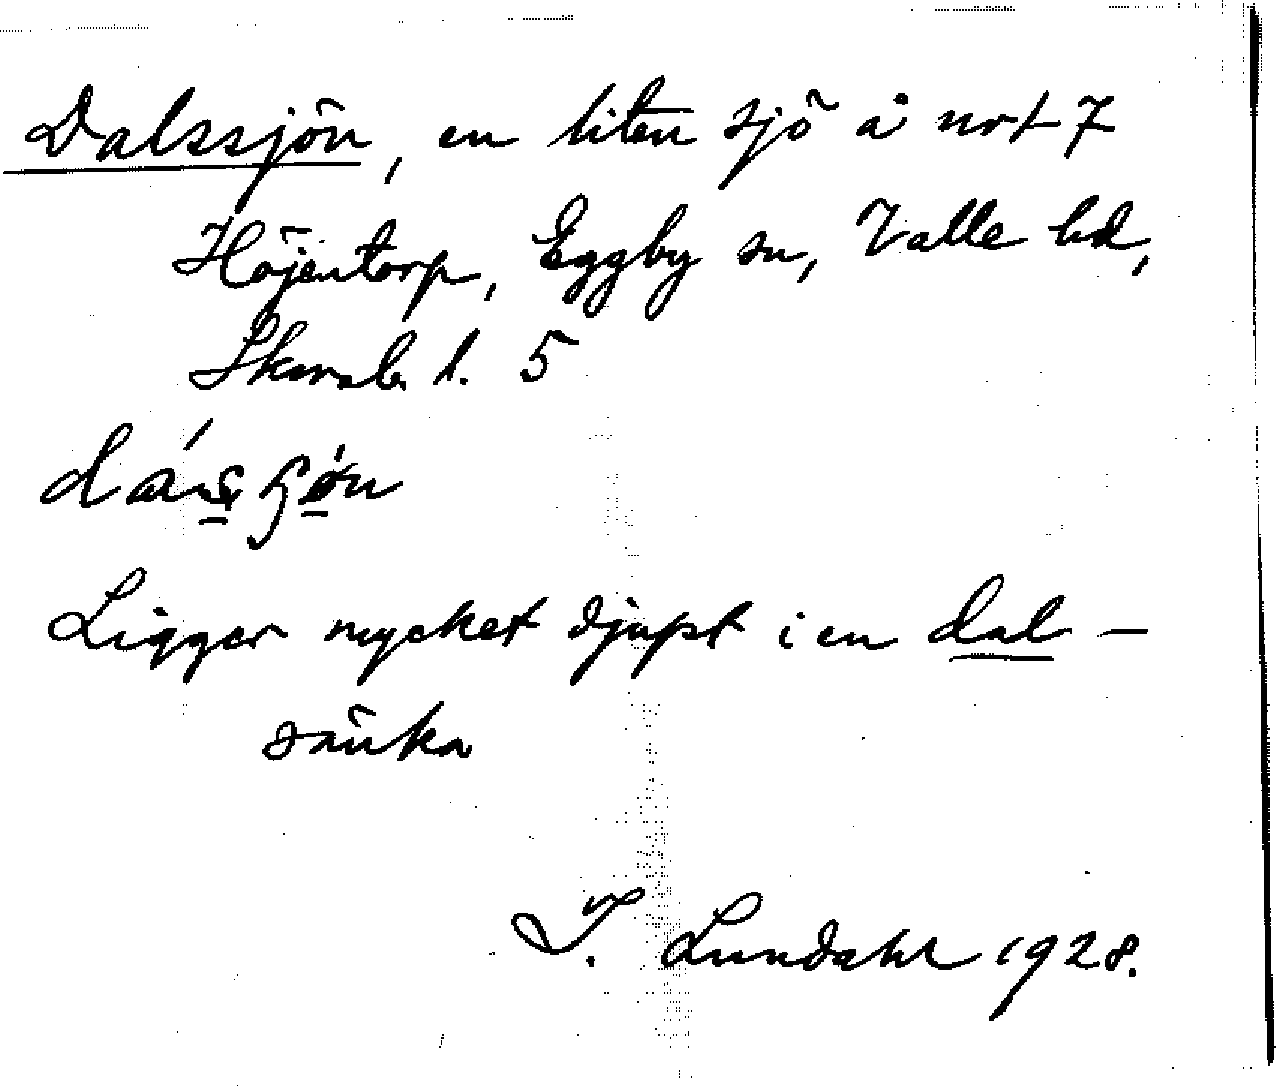 Dalssjön, en liten sjö å nr 1-7
Höjentorp, Eggby sn, Valle hd,
Skarab. l. 5
Ligger mycket djupt i en dal-
sänka
T. Lundahl 1928.